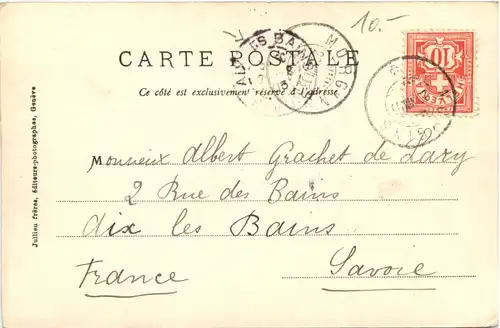 10.-
CARTE POSTALE
Ce côté est exclusivement réservé à l'adresse.
Monsieur Albert Grachet de Lary
2 Rue des Bains
Aix les Bains
France
Savoie
Jullien frères, éditeurs-photographes, Genève
LES BAINS
MORGES
10